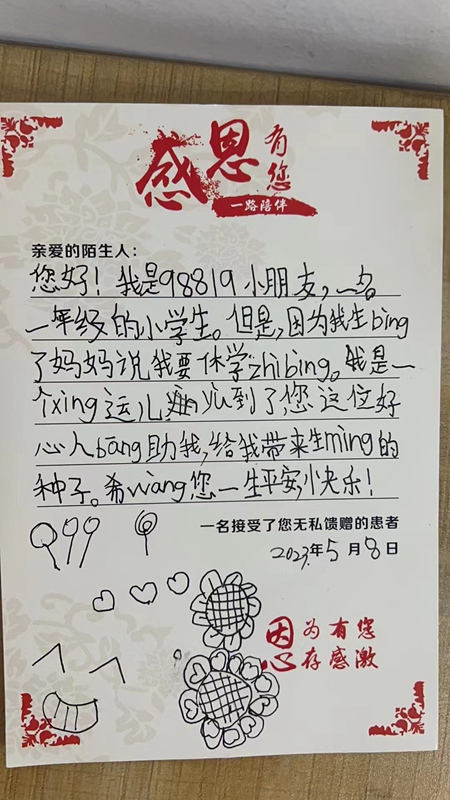 感恩有您
一路陪伴
亲爱的陌生人：
您好！我是98819小朋友，一名
一年级的小学生。但是，因为我生bing
了妈妈说我要休学zhibing。我是一
个xing运儿，到了您这位好
心人bāng助我，给我带来生mìng的
种子。希wàng您一生平安，快乐！
一名接受了您无私馈赠的患者
2023年5月8日
因为有您
心存感激